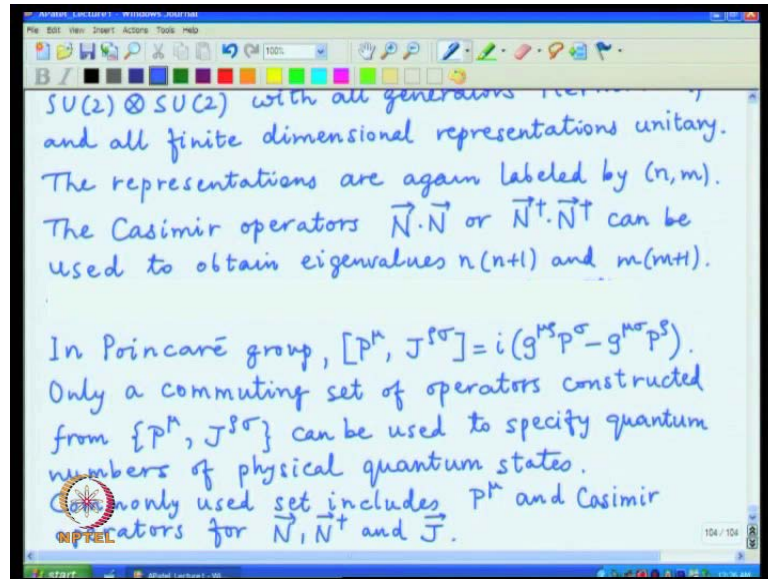 APatel_Lecture1 - Windows Journal
File Edit View Insert Actions Tools Help
100%
B I
SU(2) ⊗ SU(2) with all generators
and all finite dimensional representations unitary.
The representations are again labeled by (n,m).
The Casimir operators N⃗·N⃗ or N⃗†·N⃗† can be
used to obtain eigenvalues n(n+1) and m(m+1).
In Poincaré group, [P^μ, J^ρσ] = i(g^μρ P^σ − g^μσ P^ρ).
Only a commuting set of operators constructed
from {P^μ, J^ρσ} can be used to specify quantum
numbers of physical quantum states.
Commonly used set includes P^μ and Casimir
operators for N⃗, N⃗† and J⃗.
NPTEL
104 / 104
start
APatel_Lecture1 - Wi...
12:36 AM